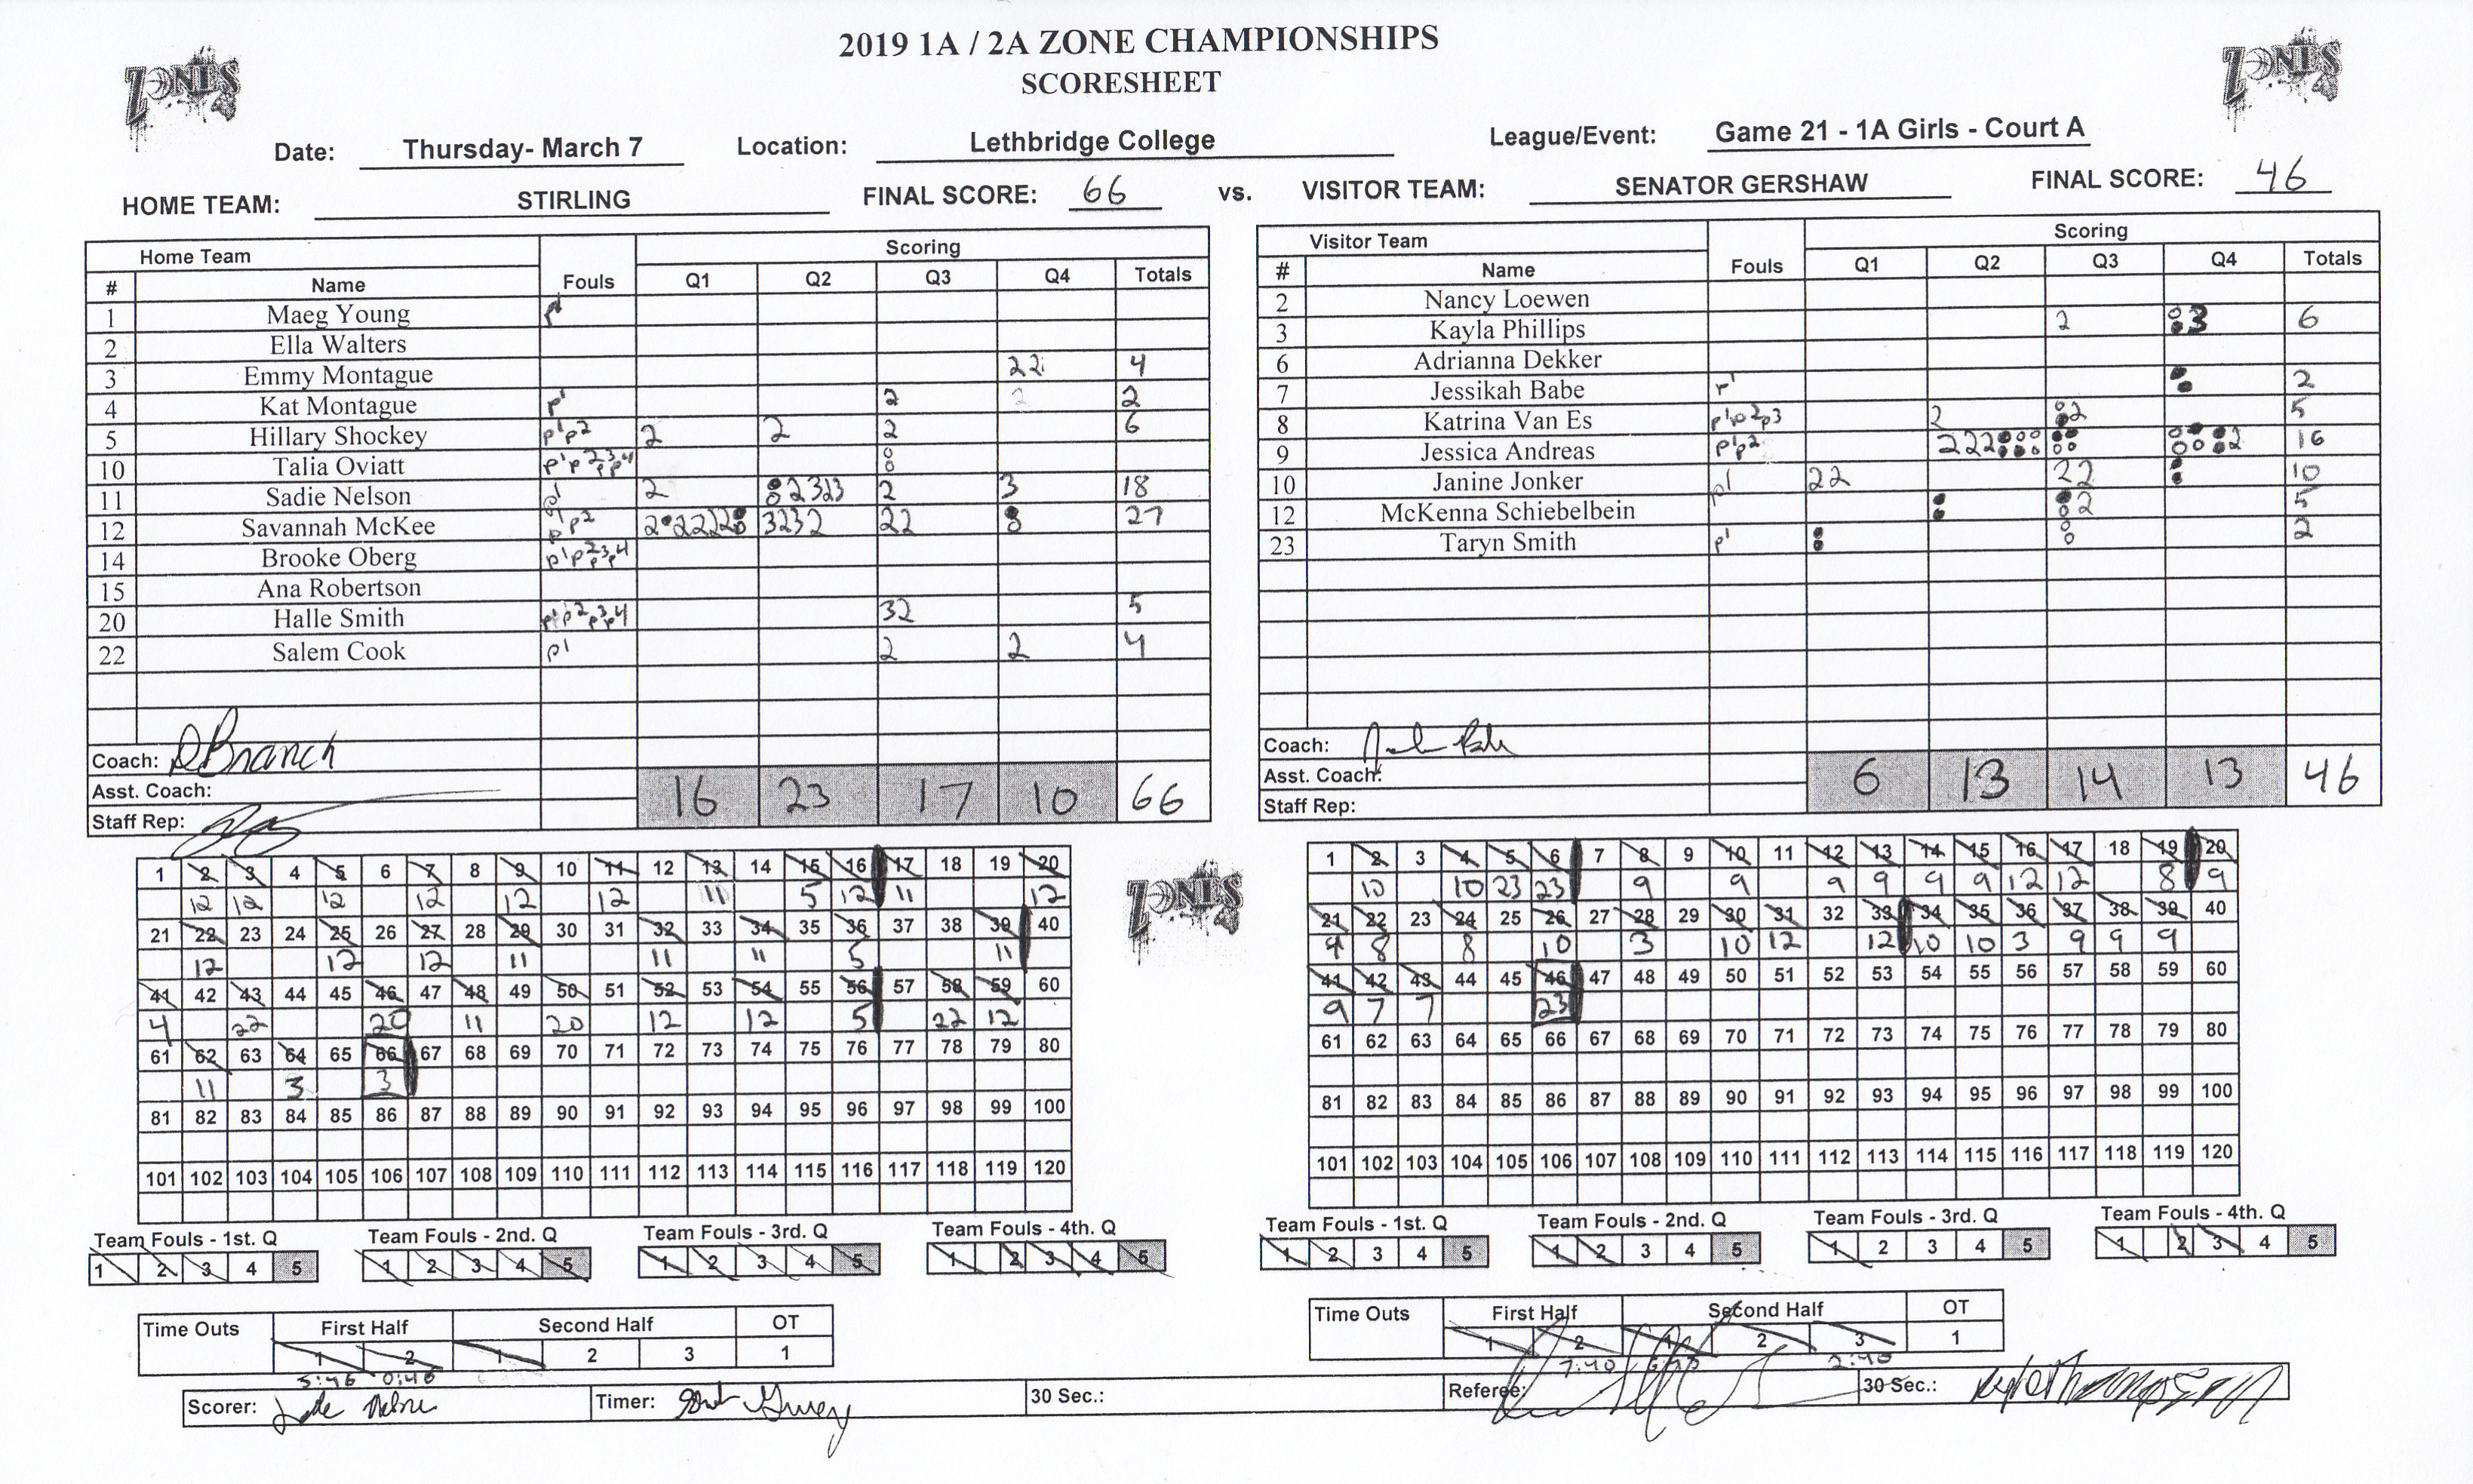 2019 1A / 2A ZONE CHAMPIONSHIPS
SCORESHEET
ZONES
ZONES
Date: Thursday- March 7 Location: Lethbridge College League/Event: Game 21 - 1A Girls - Court A
HOME TEAM: STIRLING FINAL SCORE: 66 vs. VISITOR TEAM: SENATOR GERSHAW FINAL SCORE: 46
Home Team Fouls Scoring
# Name Q1 Q2 Q3 Q4 Totals
1 Maeg Young P1
2 Ella Walters
3 Emmy Montague 22 4
4 Kat Montague P1 2 2 2
5 Hillary Shockey P1P2 2 2 2 6
10 Talia Oviatt P1P2P3P4
11 Sadie Nelson P1 2 2323 2 3 18
12 Savannah McKee P1P2 3232 22 27
14 Brooke Oberg P1P2P3P4
15 Ana Robertson
20 Halle Smith P1P2P3P4 32 5
22 Salem Cook P1 2 2 4
Coach: DBranch
Asst. Coach:
Staff Rep:
16 23 17 10 66
Visitor Team Fouls Scoring
# Name Q1 Q2 Q3 Q4 Totals
2 Nancy Loewen
3 Kayla Phillips 2 3 6
6 Adrianna Dekker
7 Jessikah Babe P1 2
8 Katrina Van Es P1P2P3 2 2 5
9 Jessica Andreas P1P2 222 2 16
10 Janine Jonker P1 22 22 10
12 McKenna Schiebelbein 2 5
23 Taryn Smith P1 2
Coach:
Asst. Coach:
Staff Rep:
6 13 14 13 46
1 2 3 4 5 6 7 8 9 10 11 12 13 14 15 16 17 18 19 20
12 12 12 12 12 12 11 5 12 11 12
21 22 23 24 25 26 27 28 29 30 31 32 33 34 35 36 37 38 39 40
12 12 12 11 11 11 5 11
41 42 43 44 45 46 47 48 49 50 51 52 53 54 55 56 57 58 59 60
4 22 20 11 20 12 12 5 22 12
61 62 63 64 65 66 67 68 69 70 71 72 73 74 75 76 77 78 79 80
11 3 3
81 82 83 84 85 86 87 88 89 90 91 92 93 94 95 96 97 98 99 100
101 102 103 104 105 106 107 108 109 110 111 112 113 114 115 116 117 118 119 120
ZONES
1 2 3 4 5 6 7 8 9 10 11 12 13 14 15 16 17 18 19 20
10 10 23 23 9 9 9 9 9 9 12 12 8 9
21 22 23 24 25 26 27 28 29 30 31 32 33 34 35 36 37 38 39 40
9 8 8 10 3 10 12 12 10 10 3 9 9 9
41 42 43 44 45 46 47 48 49 50 51 52 53 54 55 56 57 58 59 60
9 7 7 23
61 62 63 64 65 66 67 68 69 70 71 72 73 74 75 76 77 78 79 80
81 82 83 84 85 86 87 88 89 90 91 92 93 94 95 96 97 98 99 100
101 102 103 104 105 106 107 108 109 110 111 112 113 114 115 116 117 118 119 120
Team Fouls - 1st. Q Team Fouls - 2nd. Q Team Fouls - 3rd. Q Team Fouls - 4th. Q
1 2 3 4 5 1 2 3 4 5 1 2 3 4 5 1 2 3 4 5
Team Fouls - 1st. Q Team Fouls - 2nd. Q Team Fouls - 3rd. Q Team Fouls - 4th. Q
1 2 3 4 5 1 2 3 4 5 1 2 3 4 5 1 2 3 4 5
Time Outs First Half Second Half OT
1 2 1 2 3 1
5:46 0:46
Time Outs First Half Second Half OT
1 2 1 2 3 1
7:40 2:40
Scorer: Timer: 30 Sec.:
Referee: 30 Sec.: